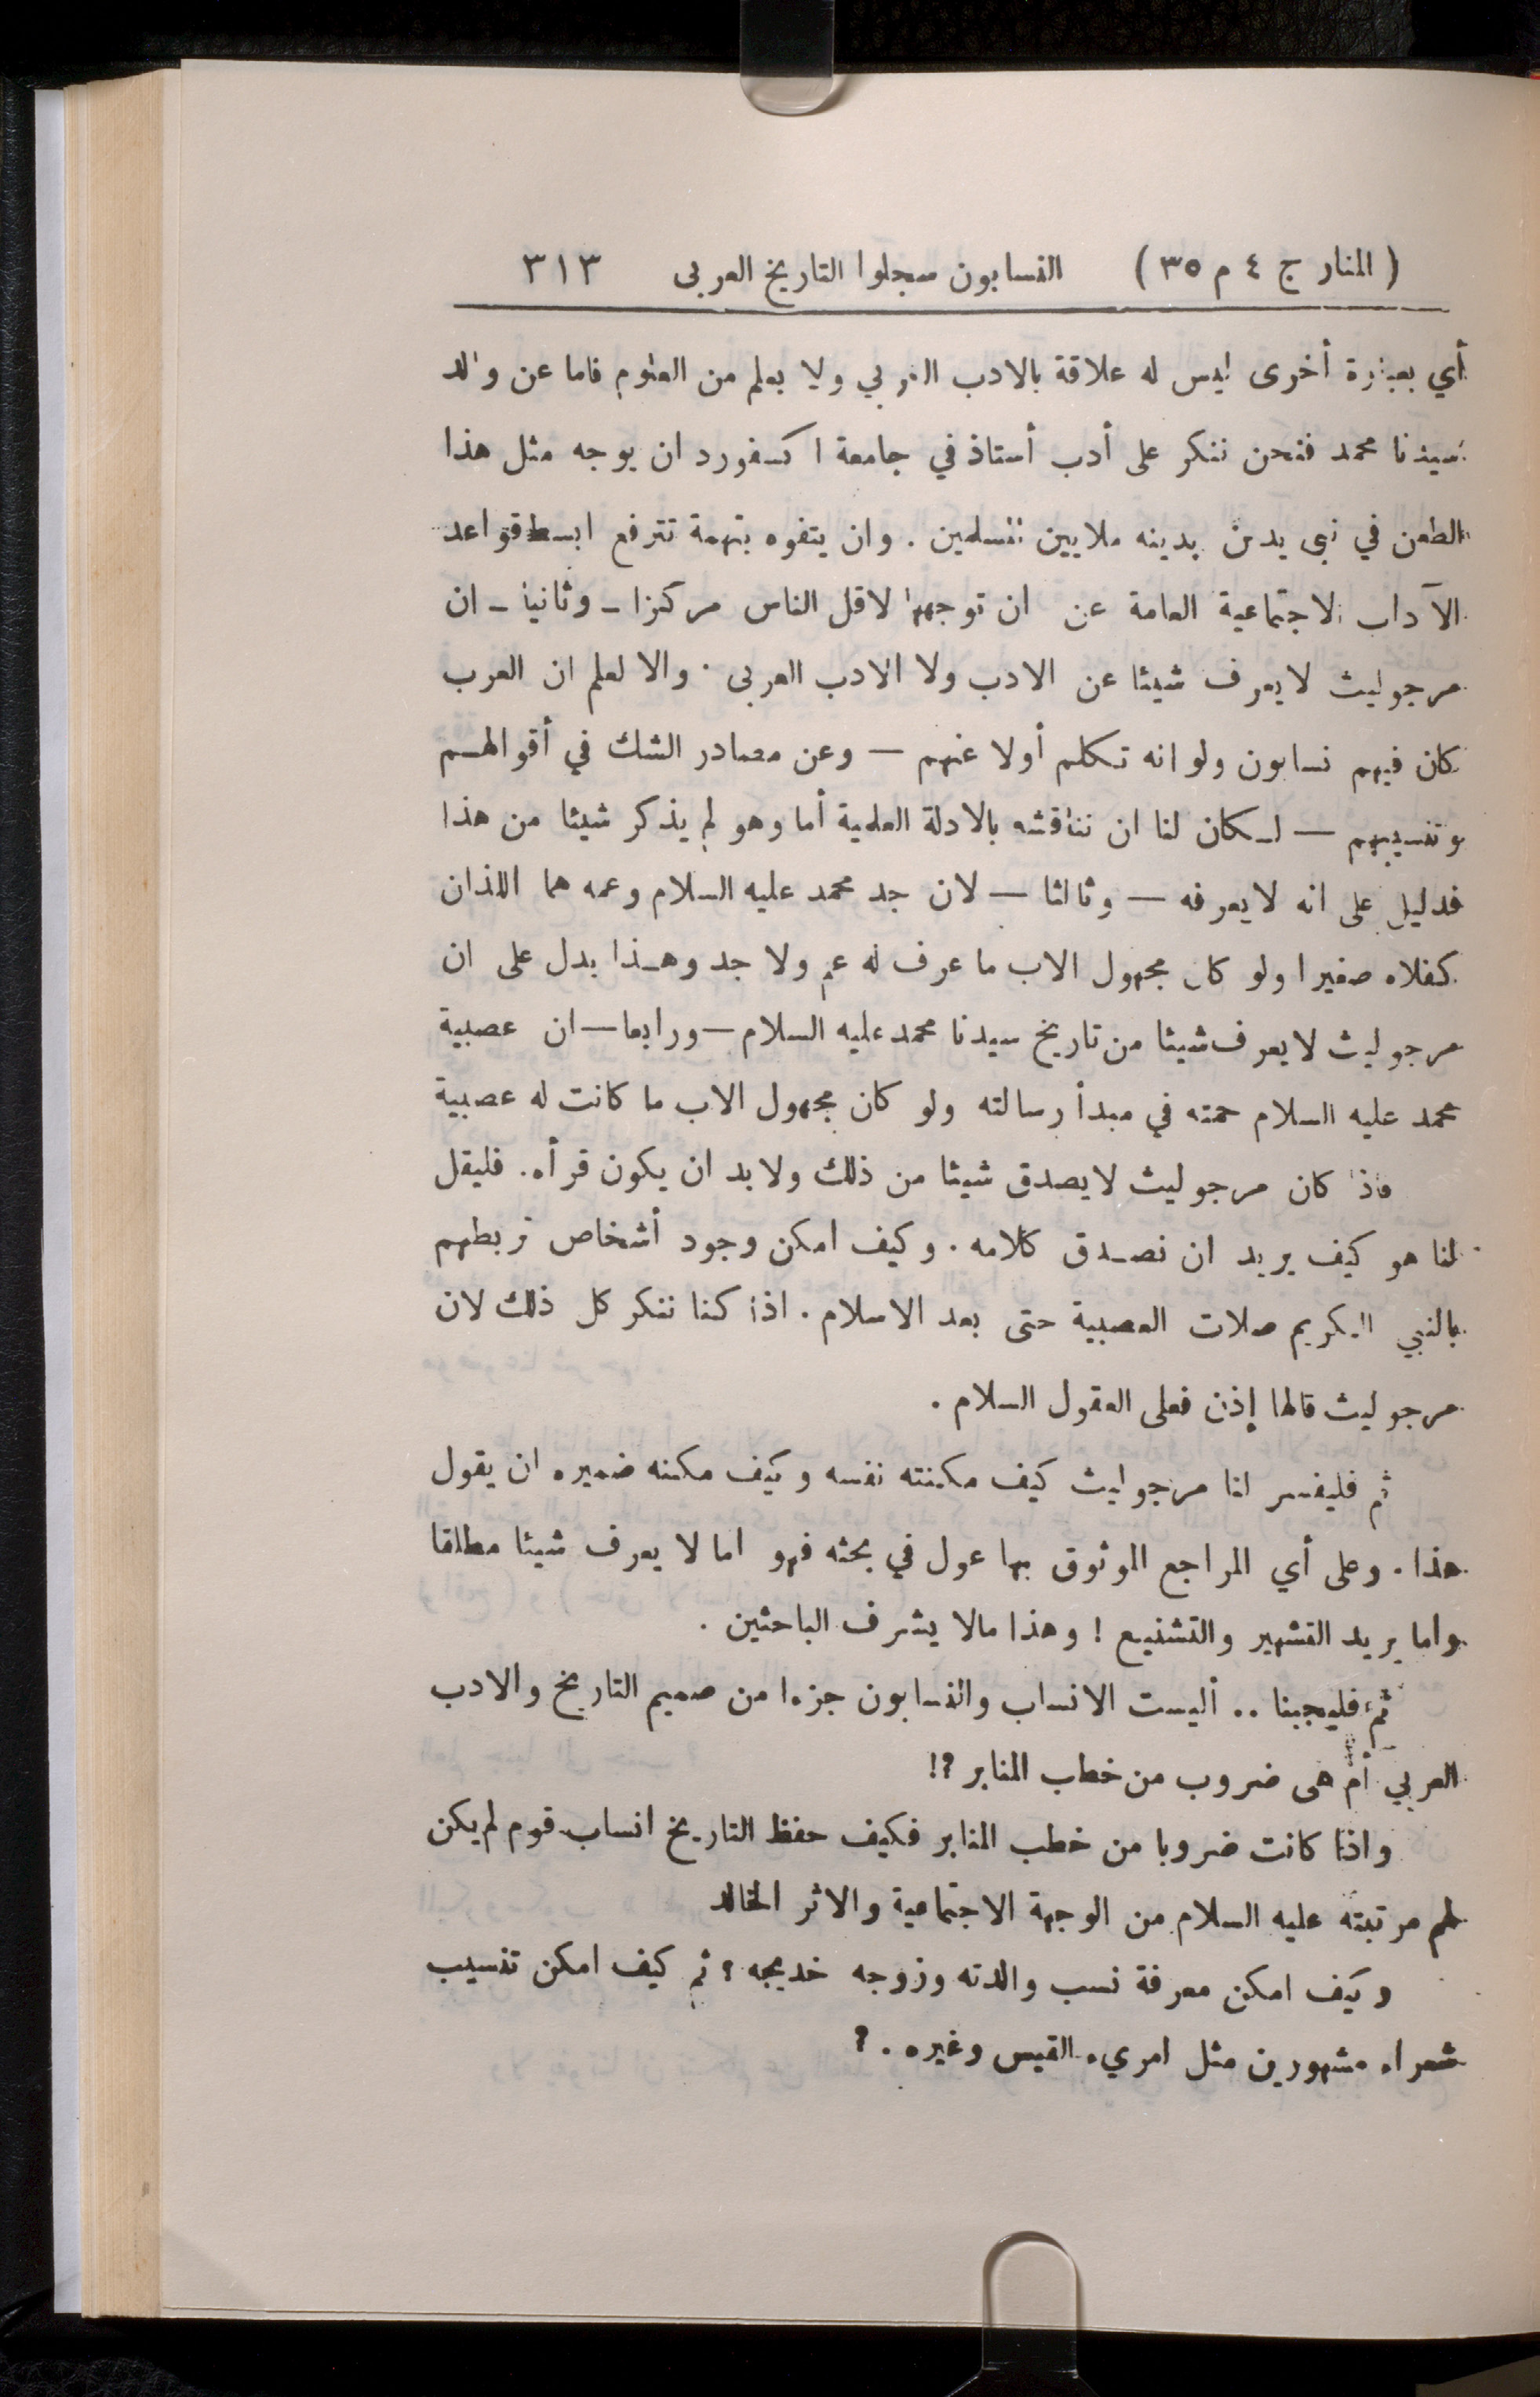 ( المنار ج ٤ م ٣٥ ) النسابون سجلوا التاريخ العربى ٣١٣
أي بعبارة أخرى ليس له علاقة بالادب العربي ولا بعلم من العلوم فاما عن والد
سيدنا محمد فنحن ننكر على أدب أستاذ في جامعة اكسفورد ان يوجه مثل هذا
الطعن في نبى يدين بدينه ملايين المسلمين . وان يتفوه بتهمة تترفع ابسط قواعد
الآداب الاجتماعية العامة عن ان توجهها لاقل الناس مركزا ـ وثانيا ـ ان
مرجوليث لا يعرف شيئا عن الادب ولا الادب العربى . والا لعلم ان العرب
كان فيهم نسابون ولو انه تكلم أولا عنهم — وعن مصادر الشك في أقوالهم
وتنسيبهم — لكان لنا ان نناقشه بالادلة العلمية أما وهو لم يذكر شيئا من هذا
فدليل على انه لا يعرفه — وثالثا — لان جد محمد عليه السلام وعمه هما اللذان
كفلاه صغيرا ولو كان مجهول الاب ما عرف له عم ولا جد وهذا يدل على ان
مرجوليث لا يعرف شيئا من تاريخ سيدنا محمد عليه السلام — ورابعا — ان عصبية
محمد عليه السلام حمته في مبدأ رسالته ولو كان مجهول الاب ما كانت له عصبية
فاذا كان مرجوليث لا يصدق شيئا من ذلك ولا بد ان يكون قرأه . فليقل
لنا هو كيف يريد ان نصدق كلامه . وكيف امكن وجود أشخاص تربطهم
بالنبي الكريم صلات العصبية حتى بعد الاسلام . اذا كنا ننكر كل ذلك لان
مرجوليث قالها إذن فعلى العقول السلام .
ثم فليفسر لنا مرجوليث كيف مكنته نفسه وكيف مكنه ضميره ان يقول
هذا . وعلى أي المراجع الموثوق بها عول في بحثه فهو اما لا يعرف شيئا مطلقا
واما يريد التشهير والتشنيع ! وهذا مالا يشرف الباحثين .
ثم فليجبنا .. أليست الانساب والنسابون جزءا من صميم التاريخ والادب
العربي أم هى ضروب من خطب المنابر ?!
واذا كانت ضروبا من خطب المنابر فكيف حفظ التاريخ انساب قوم لم يكن
لهم مرتبته عليه السلام من الوجهة الاجتماعية والاثر الخالد
وكيف امكن معرفة نسب والدته وزوجه خديجه ؟ ثم كيف امكن تنسيب
شعراء مشهورين مثل امريء القيس وغيره . ?